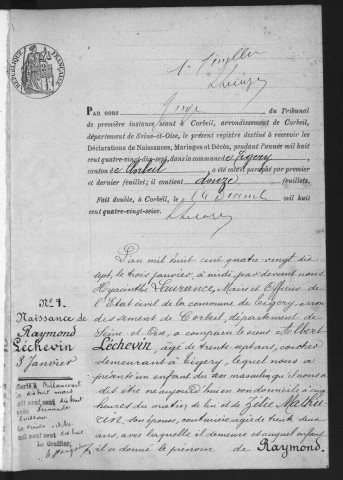 RÉPUBLIQUE FRANÇAISE
1er feuillet
PAR NOUS Juge du Tribunal
de première instance séant à Corbeil, arrondissement de Corbeil,
département de Seine-et-Oise, le présent registre destiné à recevoir les
Déclarations de Naissances, Mariages et Décès, pendant l'année mil huit
cent quatre-vingt-dix-sept, dans la commune de Tigery
canton de Corbeil a été coté et paraphé par premier
et dernier feuillet; il contient douze feuillets.
Fait double, à Corbeil, le 14 Décembre mil huit
cent quatre-vingt-seize.
L'an mil huit cent quatre-vingt dix
sept, le trois janvier, à midi par devant nous
Hyacinthe Maire et Officier de
l'Etat civil de la commune de Tigery, arron
dissement de Corbeil, département de
Seine et Oise, a comparu le sieur Albert
Léchevin, âgé de trente ans, cocher
demeurant à Tigery, lequel nous a
présenté un enfant du sexe masculin qu'il nous a
dit être né aujourd'hui en son domicile à cinq
heures du matin de lui et de Zélie Mathu
son épouse, couturière agée de trente
ans avec laquelle il demeure et auquel enfant
il a donné le prénom de Raymond.
N° 1.
Naissance de
Raymond
Léchevin
3 Janvier
Marié à Billancourt
le dix huit mars
mil neuf cent dix huit
avec
mil neuf cent dix huit
Le Greffier,